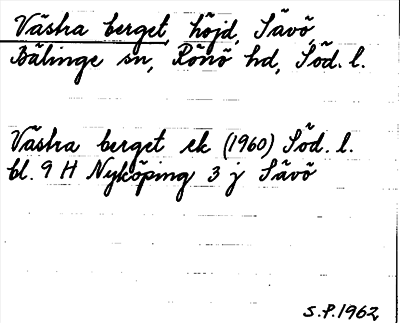 Västra berget, höjd, Sävö
Bälinge sn, Rönö hd, Söd. l.
Västra berget ek (1960) Söd. l.
bl. 9 H Nyköping 3 j Sävö
S.P. 1962